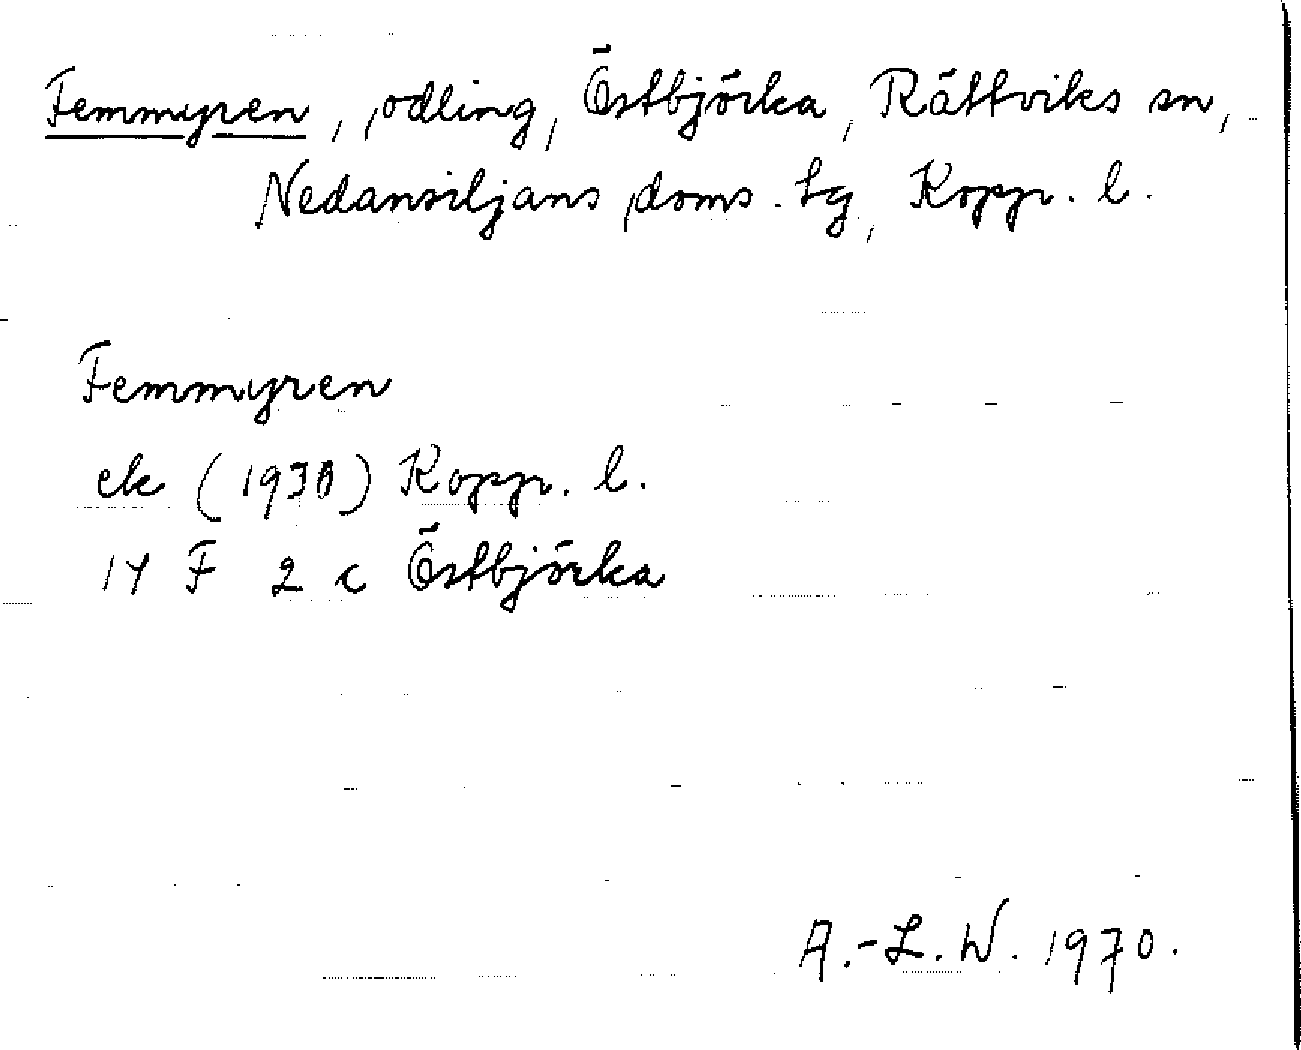 Femmyren, odling, Östbjörka, Rättviks sn,
Nedansiljans doms. tg, Kopp. l.
Femmyren
ek (1930) Kopp. l.
14 F 2 c Östbjörka
A.-L. W. 1970.